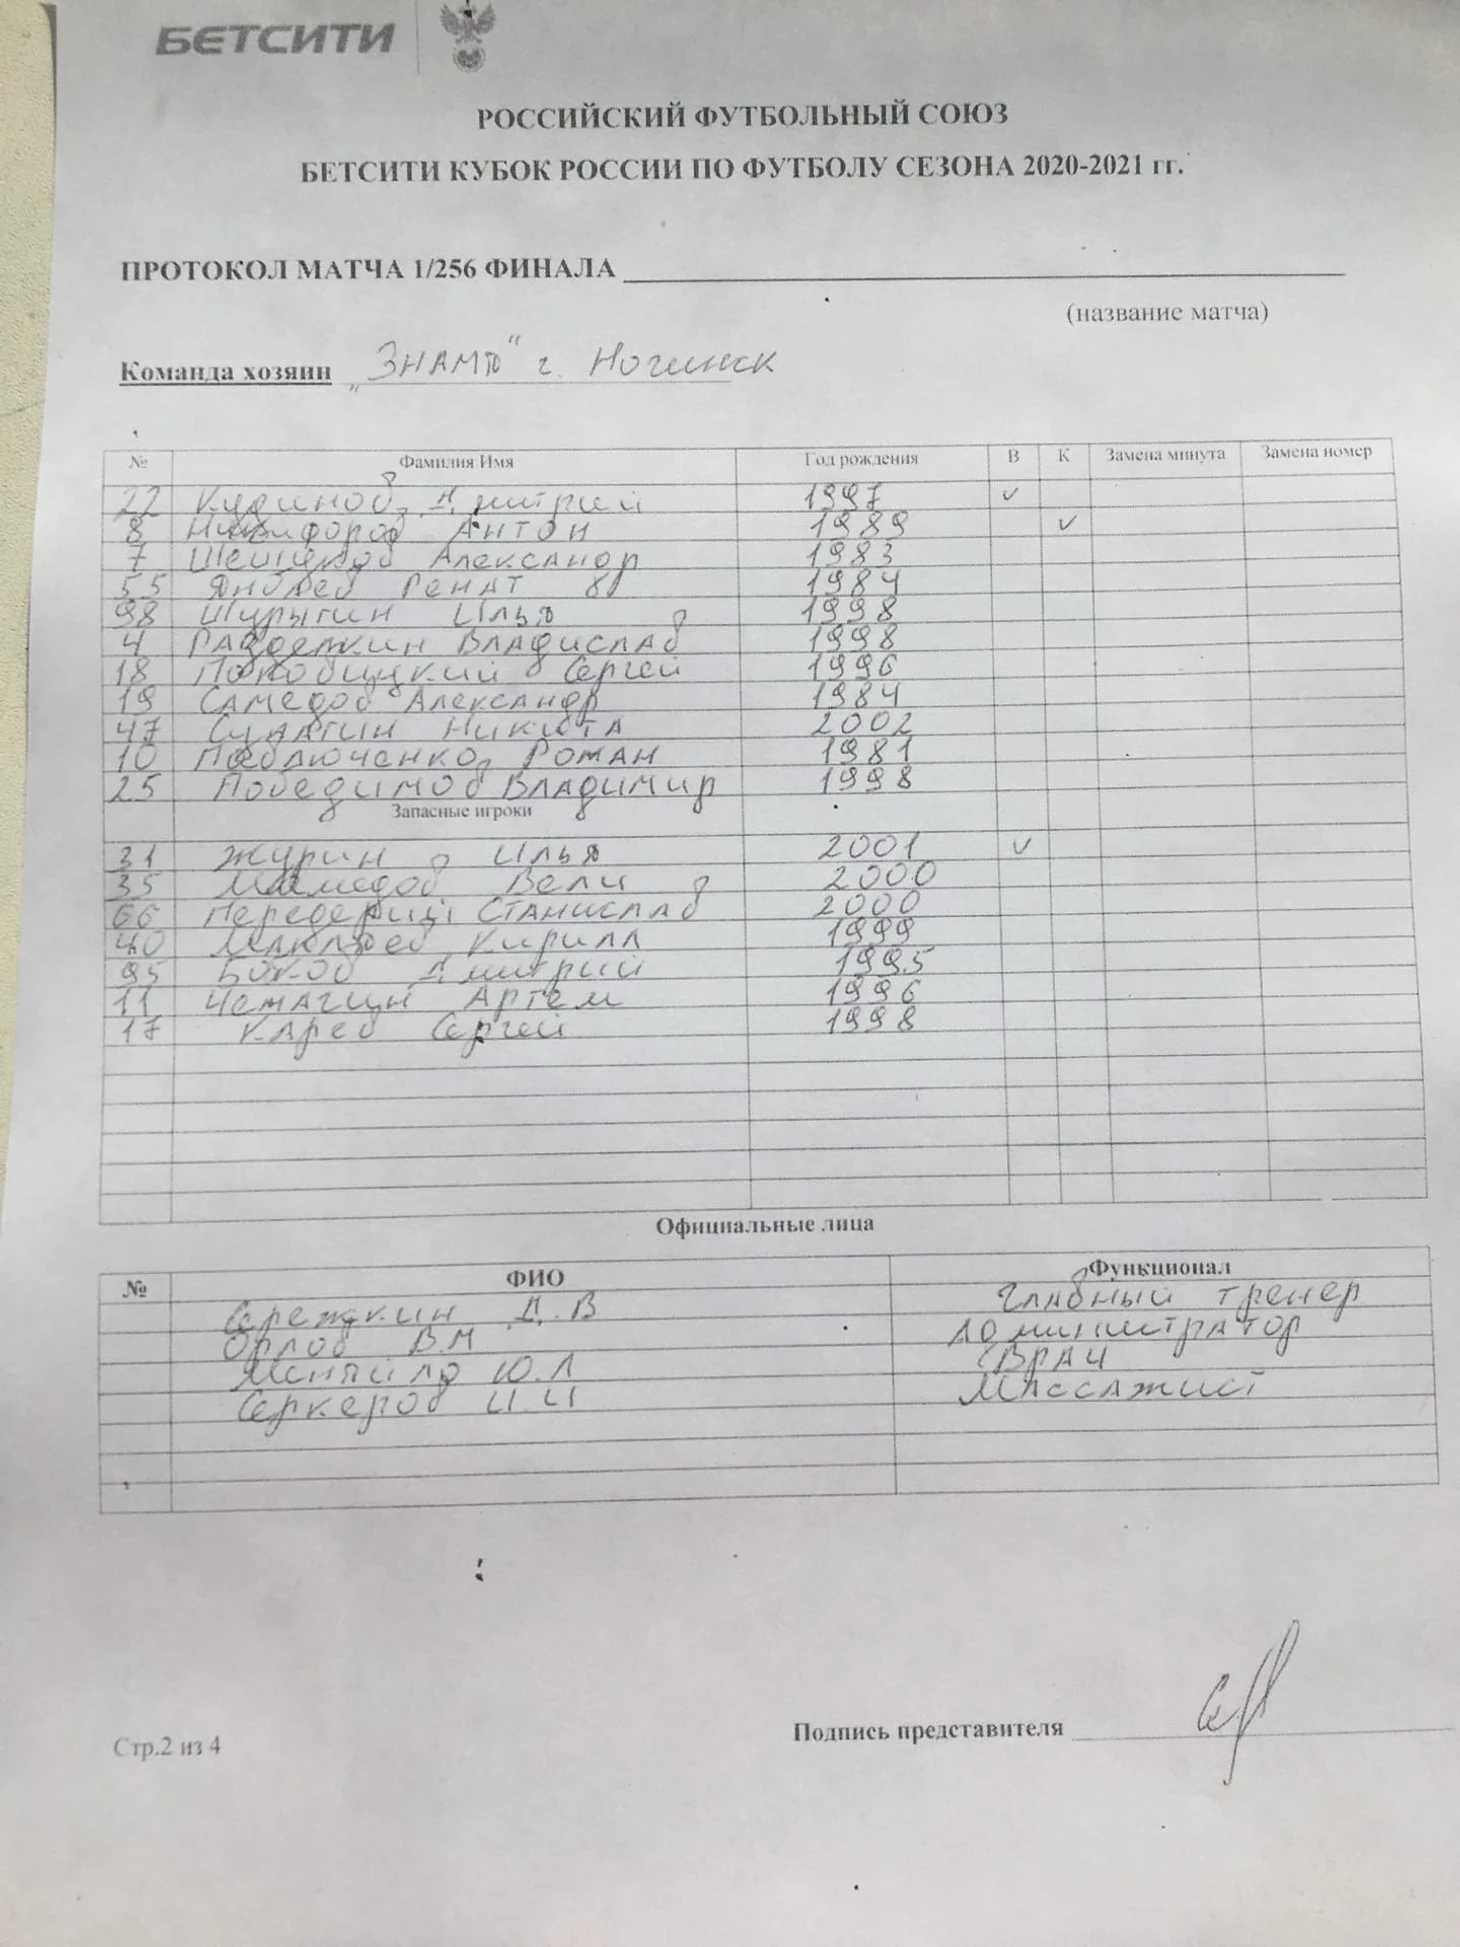 БЕТСИТИ
РОССИЙСКИЙ ФУТБОЛЬНЫЙ СОЮЗ
БЕТСИТИ КУБОК РОССИИ ПО ФУТБОЛУ СЕЗОНА 2020-2021 гг.
ПРОТОКОЛ МАТЧА 1/256 ФИНАЛА
(название матча)
Команда хозяин „ЗНАМЯ“ г. Ногинск
№ Фамилия Имя Год рождения В К Замена минута Замена номер
22 Кудинов Дмитрий 1997 ✓
8 Никифоров Антон 1989 ✓
7 Шешуков Александр 1983
55 Янбаев Ренат 1984
98 Шурыгин Илья 1998
4 Владислав 1998
18 Сергей 1996
19 Самедов Александр 1984
47 Никита 2002
10 Павлюченко Роман 1981
25 Победимов Владимир 1998
Запасные игроки
31 Журин Илья 2001 ✓
35 Мамедов Вели 2000
66 Станислав 2000
40 Кирилл 1999
95 Боков Дмитрий 1995
11 Артем 1996
17 Карев Сергей 1998
Официальные лица
№ ФИО Функционал
Сережкин Д.В Главный тренер
Орлов В.М Администратор
Меняйло Ю.Л Врач
Серкеров И.И Массажист
Подпись представителя
Стр.2 из 4